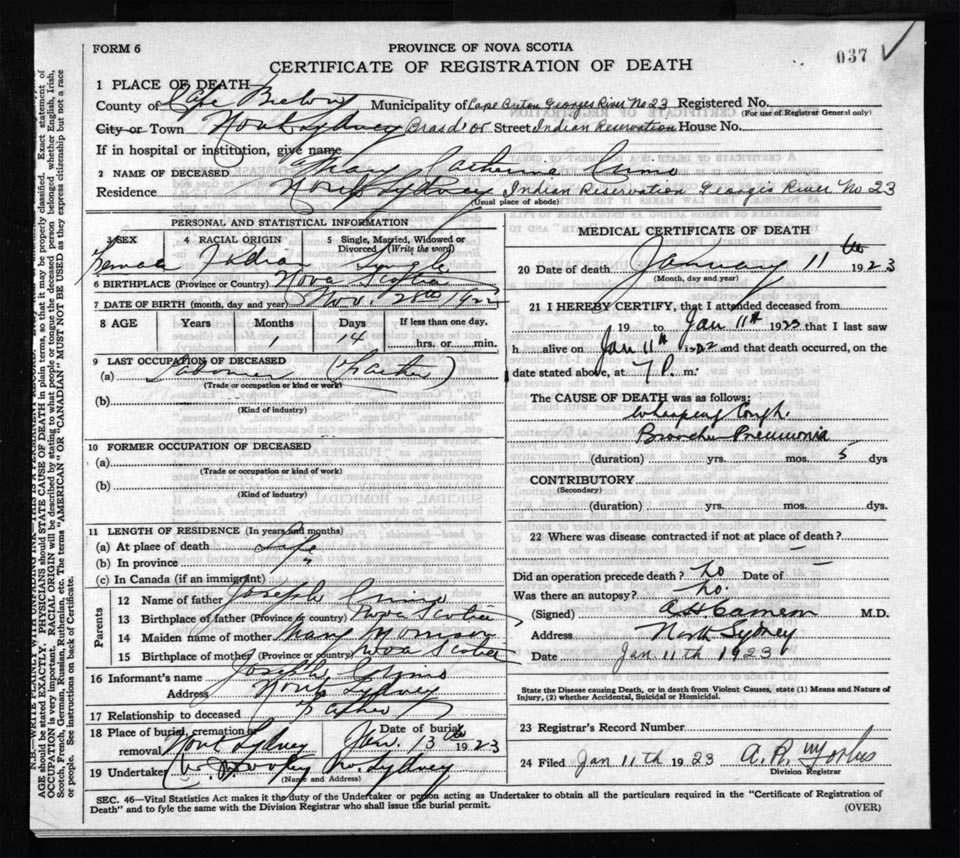 FORM 6
PROVINCE OF NOVA SCOTIA
CERTIFICATE OF REGISTRATION OF DEATH
037
1 PLACE OF DEATH
County of Cape Breton Municipality of Cape Breton Georges River No 23 Registered No.
(For use of Registrar General only)
City or Town North Sydney Brasd'or Street Indian Reservation House No.
If in hospital or institution, give name
2 NAME OF DECEASED Mary Catherine
Residence North Sydney Indian Reservation Georges River No 23
(Usual place of abode)
PERSONAL AND STATISTICAL INFORMATION
3 SEX 4 RACIAL ORIGIN 5 Single, Married, Widowed or Divorced (Write the word)
Female Indian Single
6 BIRTHPLACE (Province or Country) Nova Scotia
7 DATE OF BIRTH (month, day and year) Nov. 28th 1922
8 AGE Years Months Days If less than one day,
1 14 hrs. or min.
9 LAST OCCUPATION OF DECEASED
(a) Labourer (Father)
(Trade or occupation or kind of work)
(b)
(Kind of industry)
10 FORMER OCCUPATION OF DECEASED
(a)
(Trade or occupation or kind of work)
(b)
(Kind of industry)
11 LENGTH OF RESIDENCE (In years and months)
(a) At place of death Life
(b) In province "
(c) In Canada (if an immigrant)
Parents
12 Name of father Joseph
13 Birthplace of father (Province or country) Nova Scotia
14 Maiden name of mother Mary
15 Birthplace of mother (Province or country) Nova Scotia
16 Informant's name Joseph
Address North Sydney
17 Relationship to deceased Father
18 Place of burial, cremation or removal North Sydney Date of burial Jan. 13th 1923
19 Undertaker No. Sydney
(Name and Address)
MEDICAL CERTIFICATE OF DEATH
20 Date of death January 11th 1923
(Month, day and year)
21 I HEREBY CERTIFY, that I attended deceased from
19 to Jan 11th 1923 that I last saw
h alive on Jan 11th and that death occurred, on the
date stated above, at 7 P. m.
The CAUSE OF DEATH was as follows:
Whooping Cough.
Broncho Pneumonia
(duration) yrs. mos. 5 dys
CONTRIBUTORY
(Secondary)
(duration) yrs. mos. dys.
22 Where was disease contracted if not at place of death?
Did an operation precede death? No Date of —
Was there an autopsy? No.
(Signed) M.D.
Address North Sydney
Date Jan. 11th 1923
State the Disease causing Death, or in death from Violent Causes, state (1) Means and Nature of
Injury, (2) whether Accidental, Suicidal or Homicidal.
23 Registrar's Record Number
24 Filed Jan 11th 1923 A. R.
Division Registrar
SEC. 46—Vital Statistics Act makes it the duty of the Undertaker or person acting as Undertaker to obtain all the particulars required in the "Certificate of Registration of
Death" and to fyle the same with the Division Registrar who shall issue the burial permit.
(OVER)
AGE should be stated EXACTLY. PHYSICIANS should STATE CAUSE OF DEATH in plain terms, so that it may be properly classified. Exact statement of
OCCUPATION is very important. RACIAL ORIGIN will be described by stating to what people or tongue the deceased person belonged whether English, Irish,
Scotch, French, German, Russian, Ruthenian, etc. The terms "AMERICAN" OR "CANADIAN" MUST NOT BE USED as they express citizenship but not a race
or people. See instructions on back of Certificate.